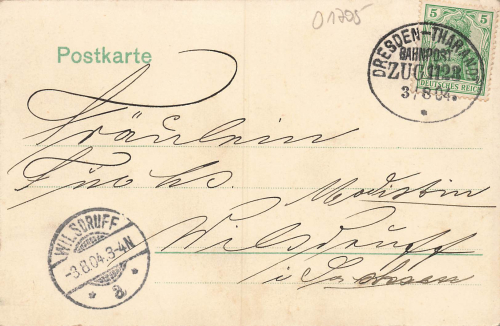 01705
5 5
DEUTSCHES REICH
DRESDEN-THARANDT
BAHNPOST
ZUG 1128
3/8 04.
Postkarte
Fräulein
Fuchs.
Modistin
Wilsdruff
i Sachsen
WILSDRUFF
-3.8.04.3-4N
* a *